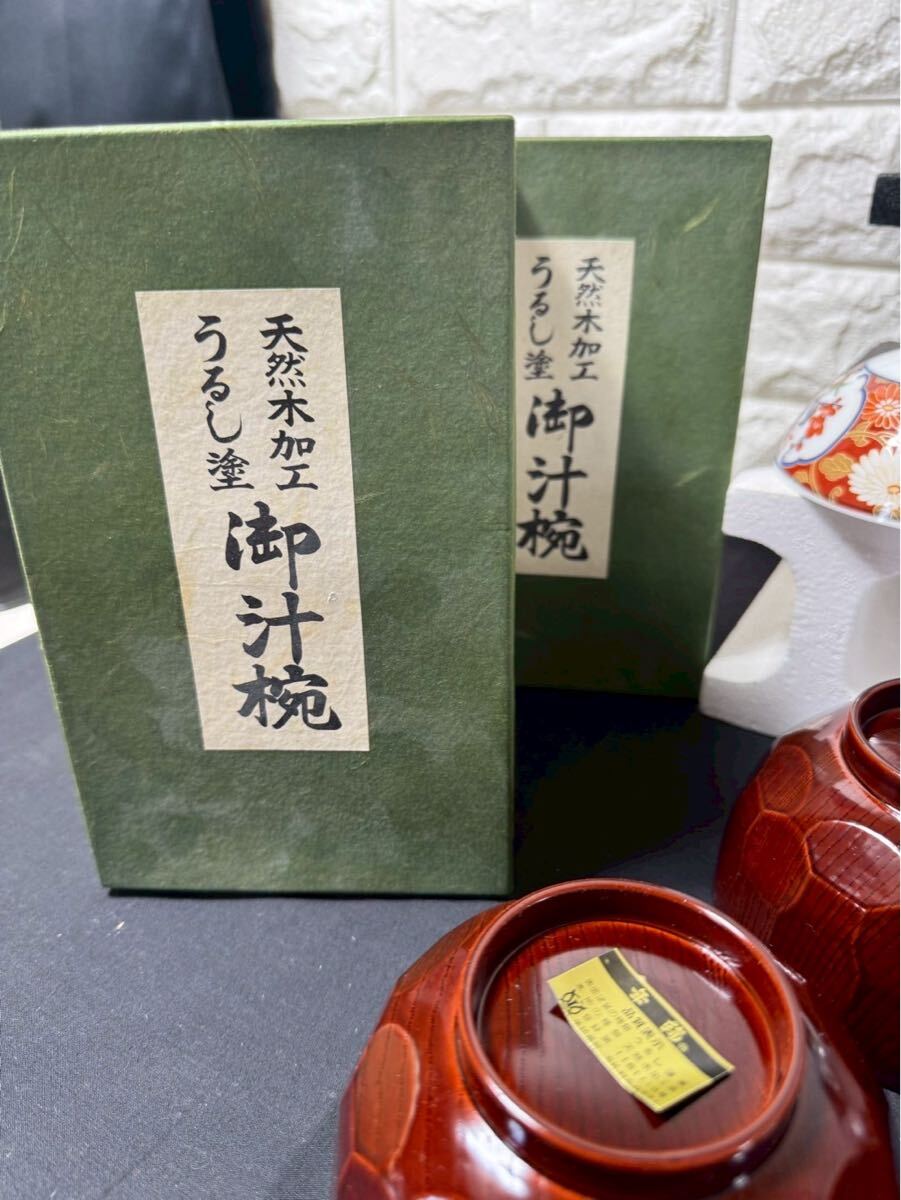 天然木加工
うるし塗
御汁椀
天然木加工
うるし塗
御汁椀
品質表示